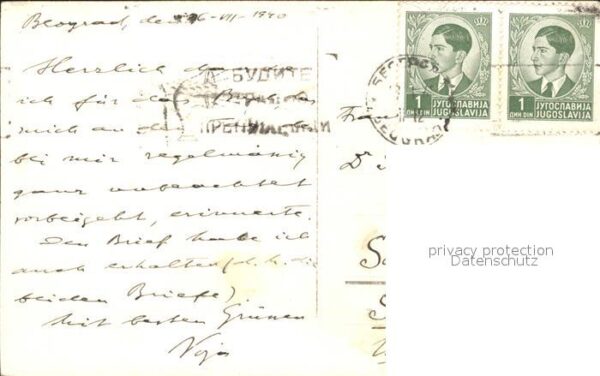 Beograd, den 26-VII-1940
Herzlich danke
ich für das
mich an den
bei mir regelmäßig
ganz unbeachtet
vorbeigeht, erinnerte.
Den Brief habe ich
auch erhalten (d.h. die
beiden Briefe)
Mit besten Grüssen
Voja
БУДИТЕ
БЕОГРАД
BEOGRAD
1
ДИН DIN
ЈУГОСЛАВИЈА
JUGOSLAVIJA
1
ДИН DIN
ЈУГОСЛАВИЈА
JUGOSLAVIJA
Fra
D
privacy protection
Datenschutz